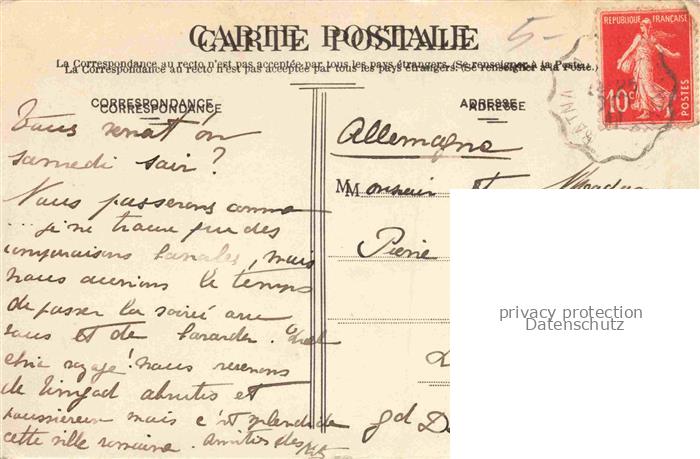 CARTE POSTALE
La Correspondance au recto n'est pas acceptée par tous les pays étrangers. (Se renseigner à la Poste.)
5-
REPUBLIQUE FRANÇAISE
10c
POSTES
BATNA
CORRESPONDANCE
ADRESSE
Vous verrat'on
samedi soir?
Nous passerons comme
... je ne trouve que des
comparaisons banales, mais
nous aurions le temps
de passer la soirée avec
vous et de bavarder. Quel
chic voyage! nous revenons
de Timgad abrutis et
poussiéreux mais c'est splendide
cette ville romaine. Amitiés des
Allemagne
Monsieur et Madame
Pierre
gd D
privacy protection
Datenschutz